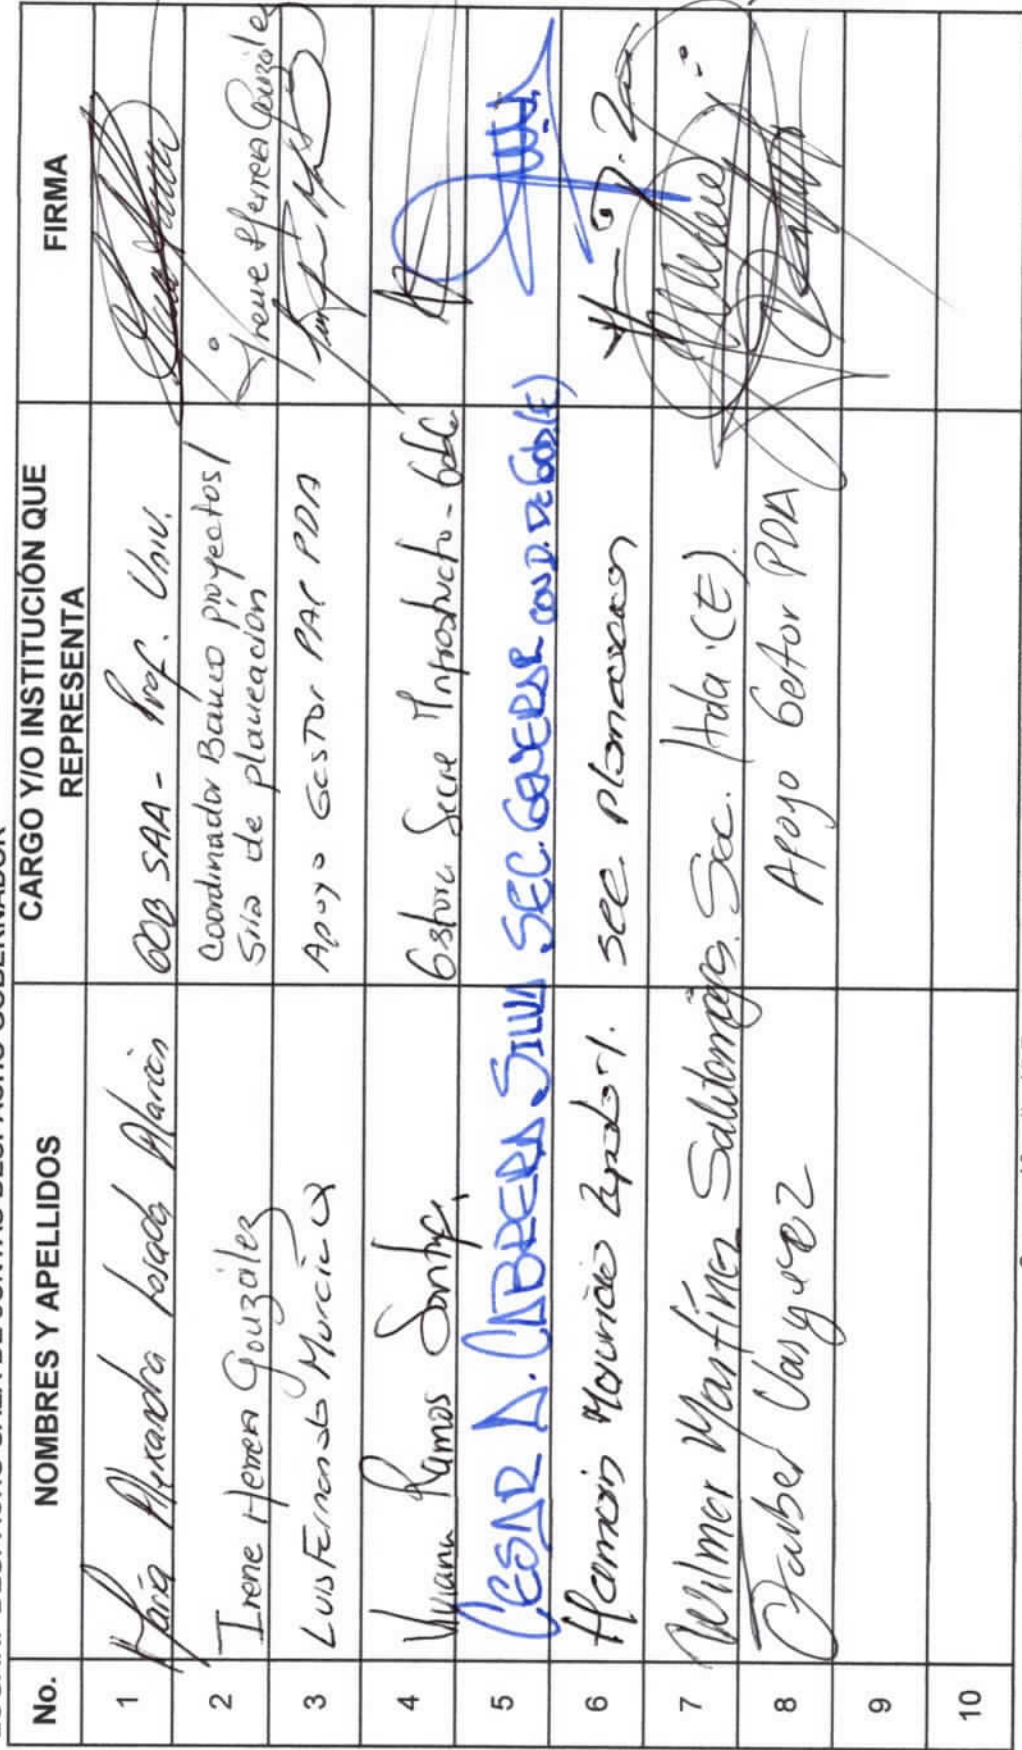 No. NOMBRES Y APELLIDOS CARGO Y/O INSTITUCIÓN QUE REPRESENTA FIRMA
1 María Alexandra Losada GOB SAA - Prof. Univ.
2 Irene Herrera González Coordinador Banco proyectos / Sria de planeación Irene Herrera González
3 Luis Fernando Murcia Apoyo GESTOR PAP PDA
4 Viviana Ramos Secre
5 CESAR A. CABRERA SILVA SEC. GENERAL COND. DE GOB(E)
6 Hernán Mauricio Sec. Planeacion
7 Wilmer Martínez Sec. Hda (E).
8 Vasquez Apoyo Gestor PDA
9
10